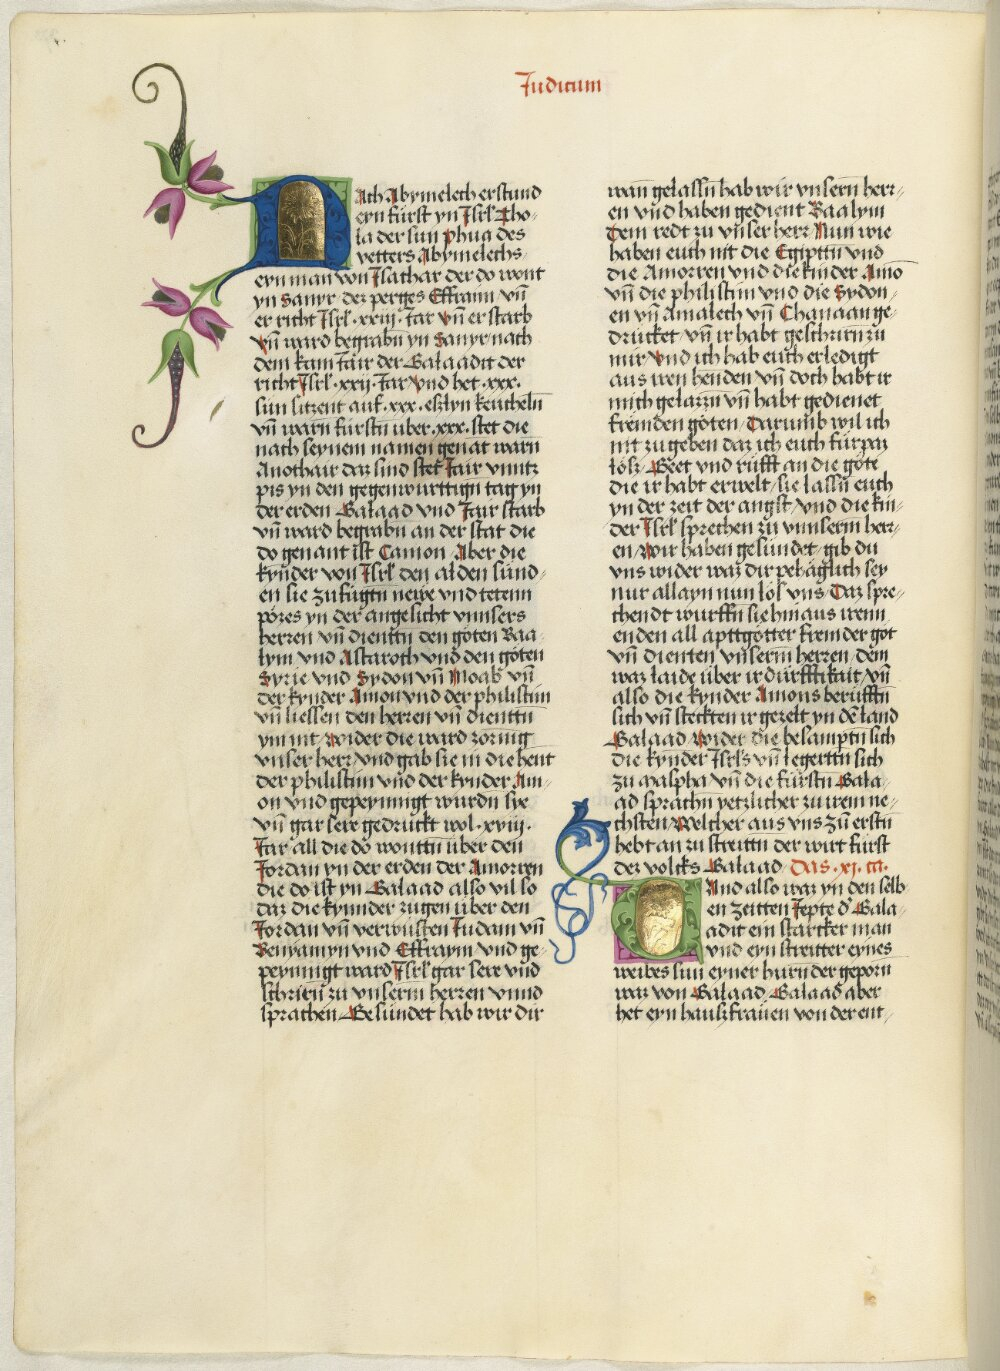 Judicum
Nach Abymelech erstund
eyn fürst yn Isrl Tho-
la der sun phua des
vetters Abymelechs
eyn man von Isachar der do wont
yn Sanyr dez perges Effraim vn̄
er richt Isrl .xxiij. Iar vn̄ er starb
vn̄ ward begrabn̄ yn Sanyr nach
dem kam Iair der Galaadit der
richt Isrl .xxij. Iar vnd het .xxx.
sün sitzent auf .xxx. eszlyn keucheln
vn̄ warn fürstn̄ über .xxx. stet die
nach seynem namen genāt warn
Anothair daz sind stet Iair vnntz
pis yn den gegenwurttign̄ tag yn
der erden Galaad vnd Iair starb
vn̄ ward begrabn̄ an der stat die
do genant ist Camon Aber die
kynder von Isrl den alden sünd-
en sie zufügtn̄ newe vnd tetenn
pözes yn der angesicht vnnsers
herren vn̄ dientn̄ den göten Baa-
lym vnd Astaroth vnd den göten
Syrie vnd Sydon vn̄ Moab vn̄
der kynder Amon vnd der philistim
vn̄ liessen den herren vn̄ dientn̄
ym nit wider die ward zornig
vnser herr vnd gab sie in die hent
der philistim vnd der kynder Am-
on vnd gepeynnigt wurdn̄ sye
vn̄ gar sere gedruckt wol .xviij.
Iar all die do wontn̄ über den
Jordan yn der erden der Amorren
die do ist yn Galaad also vil so
daz die kynnder zugen über den
Jordan vn̄ verwüsten Iudam vn̄
Benyamyn vnd Effraym vnd ge-
peynnigt ward Isrl gar sere vnd
schrien̄ zu vnserm herren vnnd
sprachen Gesündet hab wir dir
wan gelassn̄ hab wir vnsern herr-
en vnd haben gedient Baalym
Dem redt zu vn̄ser herr Nun wie
haben euch nit die Egiptn̄ vnd
die Amorren vnd die kinder Amo
vn̄ die philistim vnd die Sydon-
en vn̄ Amalech vn̄ Chanaan ge-
drucket vn̄ ir habt geschrirn̄ zu
mir vnd ich hab euch erledigt
aus iren henden vn̄ doch habt ir
mich gelazzn̄ vn̄ habt gedienet
fremden göten Darumb wil ich
nit zugeben daz ich euch fürpaz
lös Geet vnd rüfft an die göte
die ir habt erwelt sie lassn̄ euch
yn der zeit der angst vnd die kin-
der Isrl sprechen zu vnnserm herr-
en wir haben gesündet gib du
vns wider waz dir pehäglich sey
nur allayn nun lös vns Daz spre-
chendt wurffn̄ sie hinaus irenn
enden all aptgötter fremder got
vn̄ dienten vnserm herren dem
waz laide über ir dürfftikait vn̄
also die kynder Amons berüfftn̄
sich vn̄ steckten ir gezelt yn dē land
Galaad wider die besamptn̄ sich
die kynder Isrls vn̄ legertn̄ sich
zu Maspha vn̄ die fürstn̄ Gala-
ad sprachn̄ yetzlicher zu irem ne-
chsten Welcher aus vns zū erstn̄
hebt an zu streittn̄ der wirt fürst
dez volcks Galaad Das .xj. ca.
Und also waz yn den selb-
en zeitten Jepte d' Gala-
adit ein starcker man
vnd eyn streitter eynes
weibes sun eyner hurn̄ der geporn̄
waz von Galaad Galaad aber
het eyn hauszfrauen von der ent-